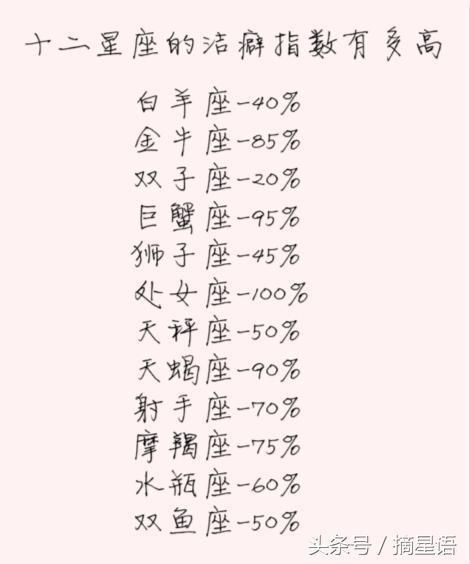 十二星座的洁癖指数有多高
白羊座-40%
金牛座-85%
双子座-20%
巨蟹座-95%
狮子座-45%
处女座-100%
天秤座-50%
天蝎座-90%
射手座-70%
摩羯座-75%
水瓶座-60%
双鱼座-50%
头条号／摘星语